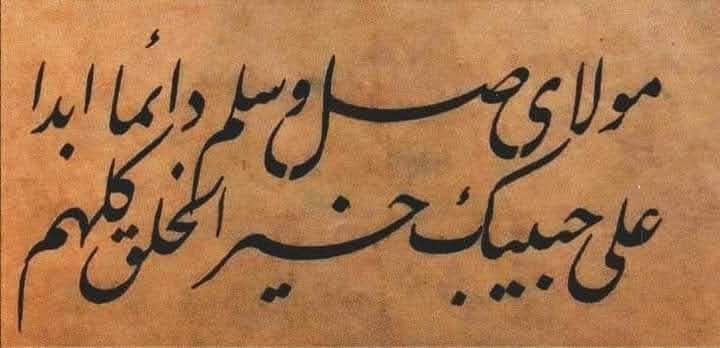 مولاي صل وسلم دائما ابدا
على حبيبك خير الخلق كلهم